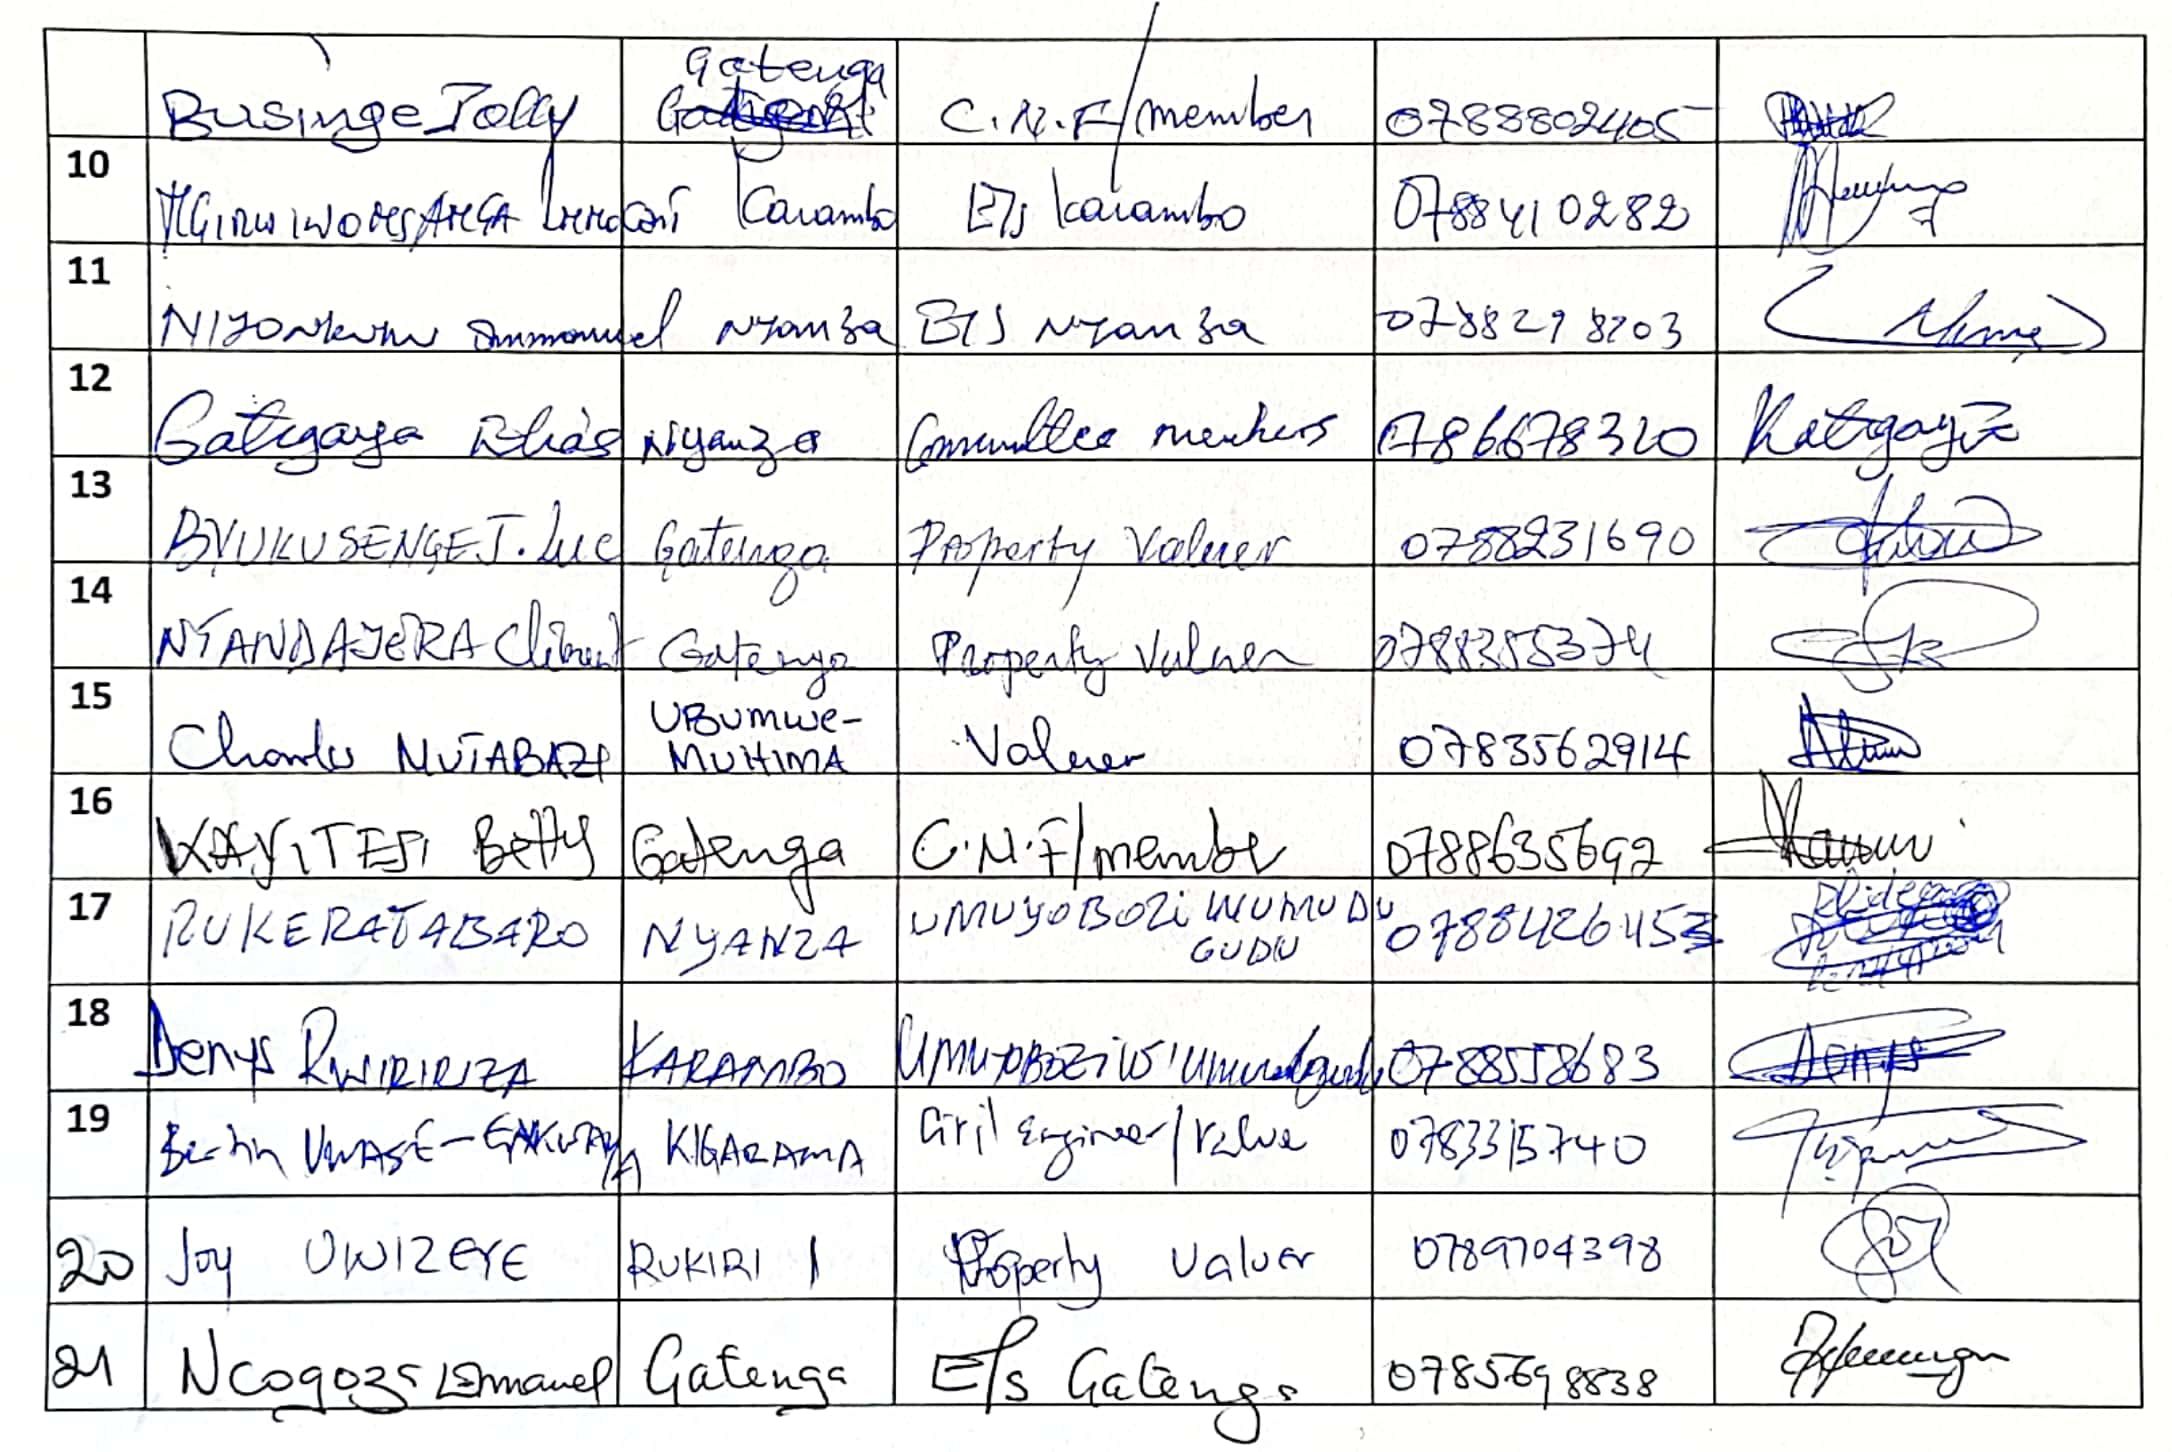 Gatenga
Businge Jolly C.N.F/member 0788802405
10
Karambo E/S Karambo 0788410282
11
Emmanuel Nyanza E/S Nyanza 0788298203
12
Gatigaya Nyanza Committee members 0786678320 Katigaya
13
BYUKUSENGE J. Luc Gatenga Property Valuer 0788231690
14
NTANDAJERA Gatenga Property Valuer 0788355374
15
UBUMWE-
Charles MUTABAZI MUHIMA Valuer 0783562914
16
KAYITESI Betty Gatenga C.N.F/member 0788635692
17
RUKERATABARO NYANZA UMUYOBOZI W'UMUDU 0788426453
GUDU
18
Denys RWIRIRIZA KARAMBO UMUYOBOZI W'Umudugudu 0788558683 Denys
19
UWASE- KIGARAMA Civil Engineer/Value 0783315740
20 Joy UWIZEYE RUKIRI I Property Valuer 0789704398 Joy
21 Ncogoza Emmanuel Gatenga E/S Gatenga 0785698838